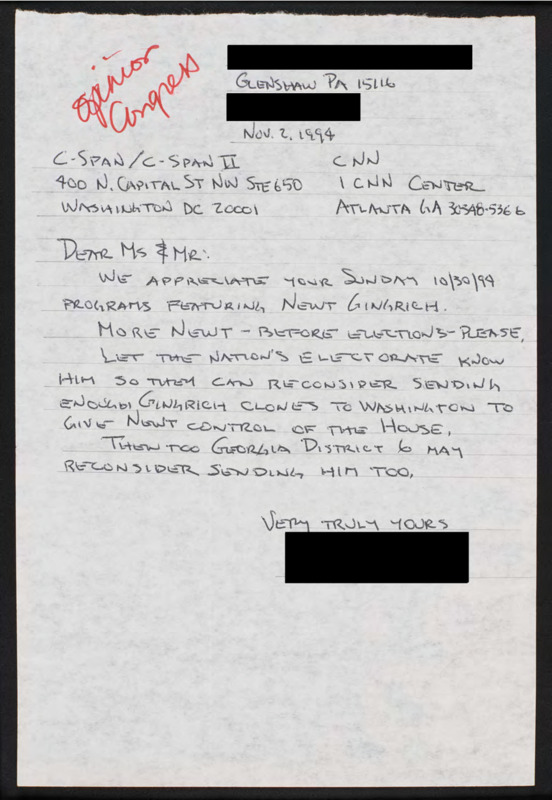 Opinion
Congress
GLENSHAW PA 15116
NOV. 2, 1994
C-SPAN/C-SPAN II
400 N. CAPITAL ST NW STE 650
WASHINGTON DC 20001
CNN
1 CNN CENTER
ATLANTA GA 30348-5366
DEAR MS & MR:
WE APPRECIATE YOUR SUNDAY 10/30/94
PROGRAMS FEATURING NEWT GINGRICH.
MORE NEWT - BEFORE ELECTIONS - PLEASE,
LET THE NATION'S ELECTORATE KNOW
HIM SO THEY CAN RECONSIDER SENDING
ENOUGH GINGRICH CLONES TO WASHINGTON TO
GIVE NEWT CONTROL OF THE HOUSE,
THEN TOO GEORGIA DISTRICT 6 MAY
RECONSIDER SENDING HIM TOO,
VERY TRULY YOURS